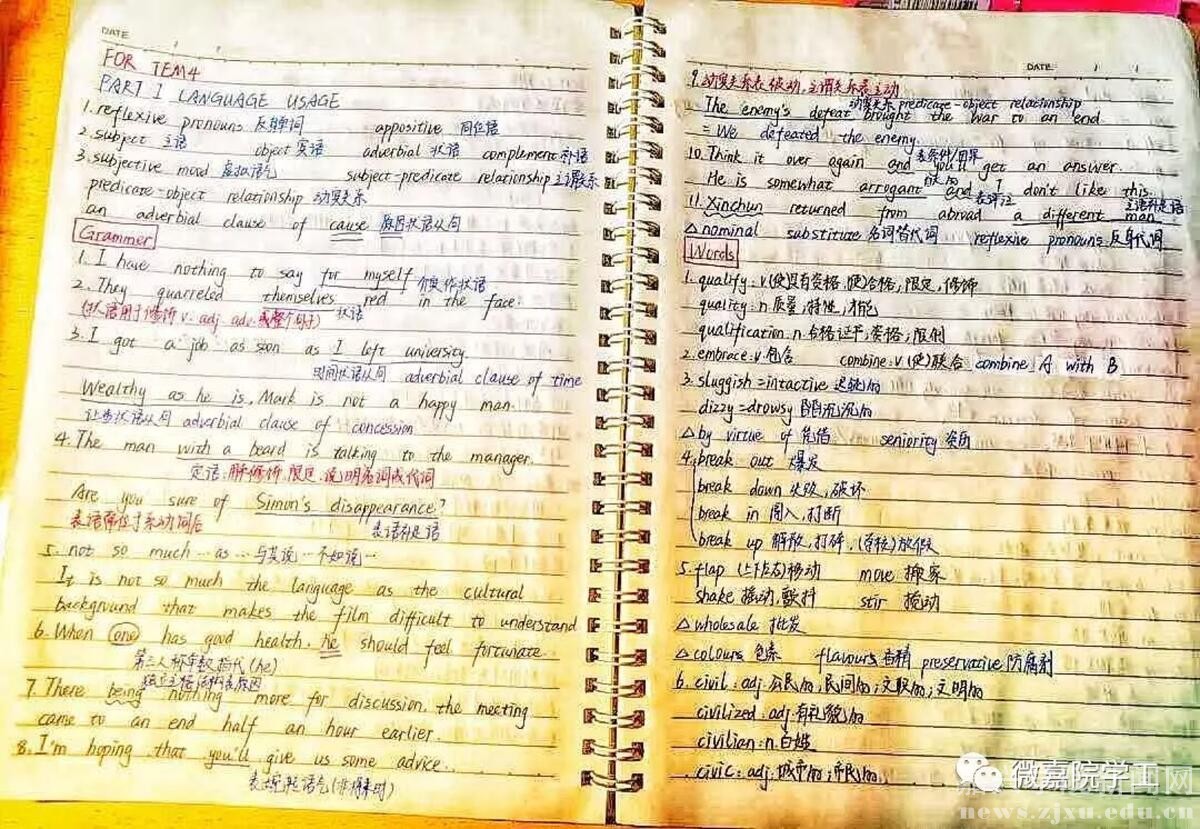 DATE
FOR TEM4
PART I LANGUAGE USAGE
1. reflexive pronouns 反身词 appositive 同位语
2. subject 主语 object 宾语 adverbial 状语 complement 补语
3. subjective mood 虚拟语气 subject-predicate relationship 主谓关系
predicate-object relationship 动宾关系
an adverbial clause of cause 原因状语从句
Grammer
1. I have nothing to say for myself 介宾作状语
2. They quarreled themselves red in the face.
状语
(状语用于修饰 v. adj. adv. 或整个句子)
3. I got a job as soon as I left university.
时间状语从句 adverbial clause of time
Wealthy as he is, Mark is not a happy man.
让步状语从句 adverbial clause of concession
4. The man with a beard is talking to the manager.
定语: 用来修饰,限定,说明名词或代词
Are you sure of Simon's disappearance?
表语常位于系动词后 表语补足语
5. not so much … as … 与其说…不如说…
It is not so much the language as the cultural
background that makes the film difficult to understand
6. When one has good health, he should feel fortunate.
第三人称单数指代 (he)
独立主格结构表原因
7. There being nothing more for discussion, the meeting
came to an end half an hour earlier.
8. I'm hoping that you'll give us some advice.
表委婉语气(非将来时)
DATE
9. 动宾关系表被动,主谓关系表主动
动宾关系 predicate-object relationship
The enemy's defeat brought the war to an end
= We defeated the enemy.
表条件/因果
10. Think it over again and you'll get an answer.
He is somewhat arrogant and I don't like this.
表评注
主语补足语
11. Xinchun returned from abroad a different man.
△ nominal substitute 名词替代词 reflexive pronouns 反身代词
Words
1. qualify: v (使)具有资格,(使)合格,限定,修饰
quality: n 质量,特性,才能
qualification: n 合格证书,资格,限制
2. embrace: v 包含 combine: v (使)联合 combine A with B
3. sluggish = intactive 迟缓的
dizzy = drowsy 昏昏沉沉的
△ by virtue of 凭借 seniority 资历
4. break out 爆发
break down 失败,破坏
break in 闯入,打断
break up 解散,打碎,(学校)放假
5. flap (上下左右)移动 move 搬家
shake 摇动,颤抖 stir 搅动
△ wholesale 批发
△ colours 色素 flavours 香精 preservative 防腐剂
6. civil: adj 公民的,民间的;文职的;文明的
civilized: adj 有礼貌的
civilian: n 百姓
civic: adj 城市的;市民的
微嘉院学工
news.zjxu.edu.cn